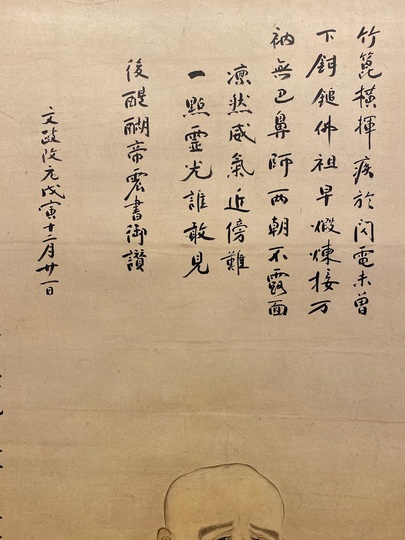 竹篦橫揮疾於閃電未曾
下鉗鎚佛祖早煅煉接万
衲無巴鼻師两朝不露面
凛然威氣近傍難
一點靈光誰敢見
後醍醐帝宸書御讃
文政改元戊寅十二月廿一日